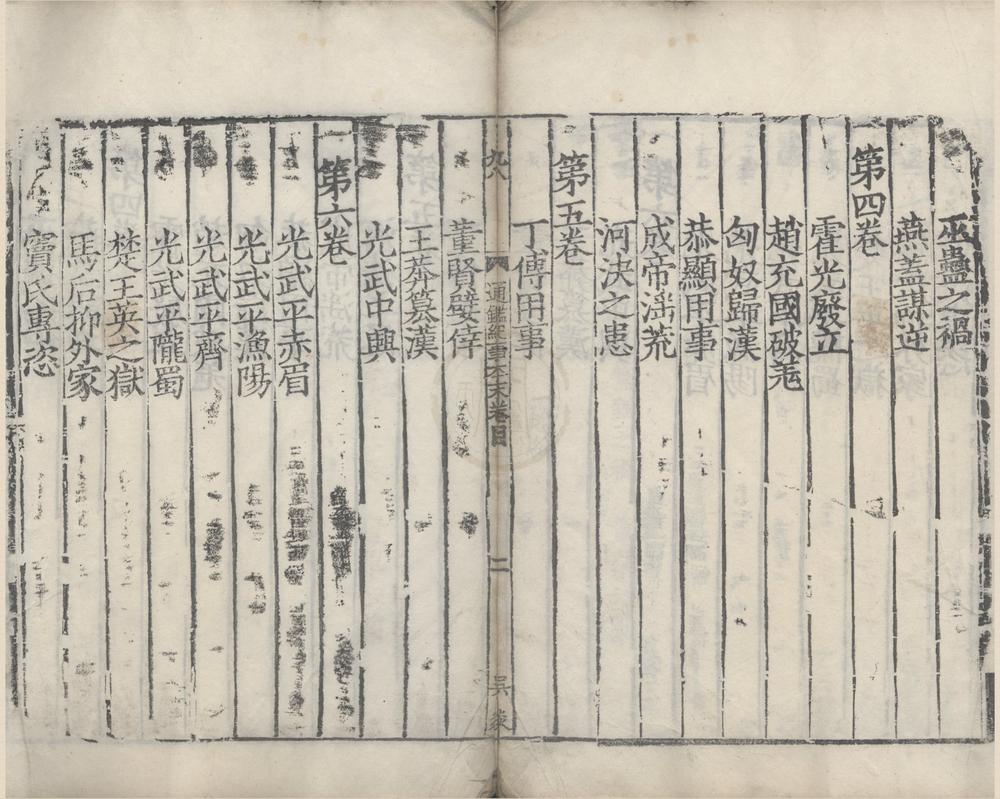 巫蠱之禍
燕蓋謀逆
第四卷
霍光廢立
趙充國破羌
匈奴歸漢
恭顯用事
成帝滛荒
河決之患
第五卷
丁傅用事
九八 通鑑紀事本末卷目 二 吳炎
董賢嬖倖
王莽篡漢
光武中興
第六卷
光武平赤眉
光武平漁陽
光武平齊
光武平隴蜀
楚王英之獄
馬后抑外家
竇氏專恣